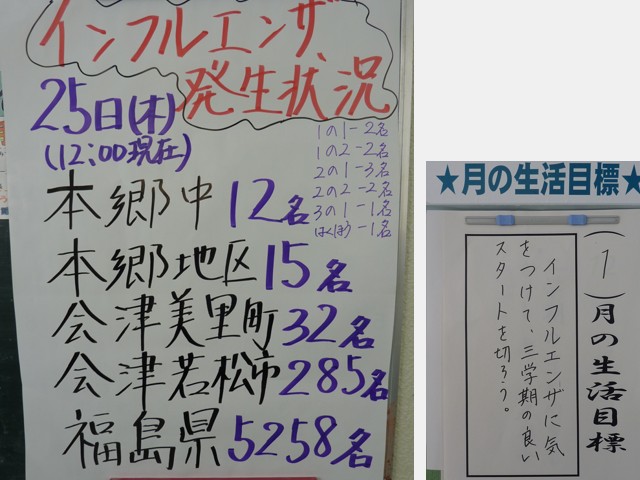 インフルエンザ
発生状況
25日(木)
(12:00現在)
1の1-2名
1の2-2名
2の1-3名
2の2-2名
3の1-1名
はくほう-1名
本郷中12名
本郷地区15名
会津美里町32名
会津若松市285名
福島県5258名
★月の生活目標★
(1)月の生活目標
インフルエンザに気
をつけて、三学期の良い
スタートを切ろう。